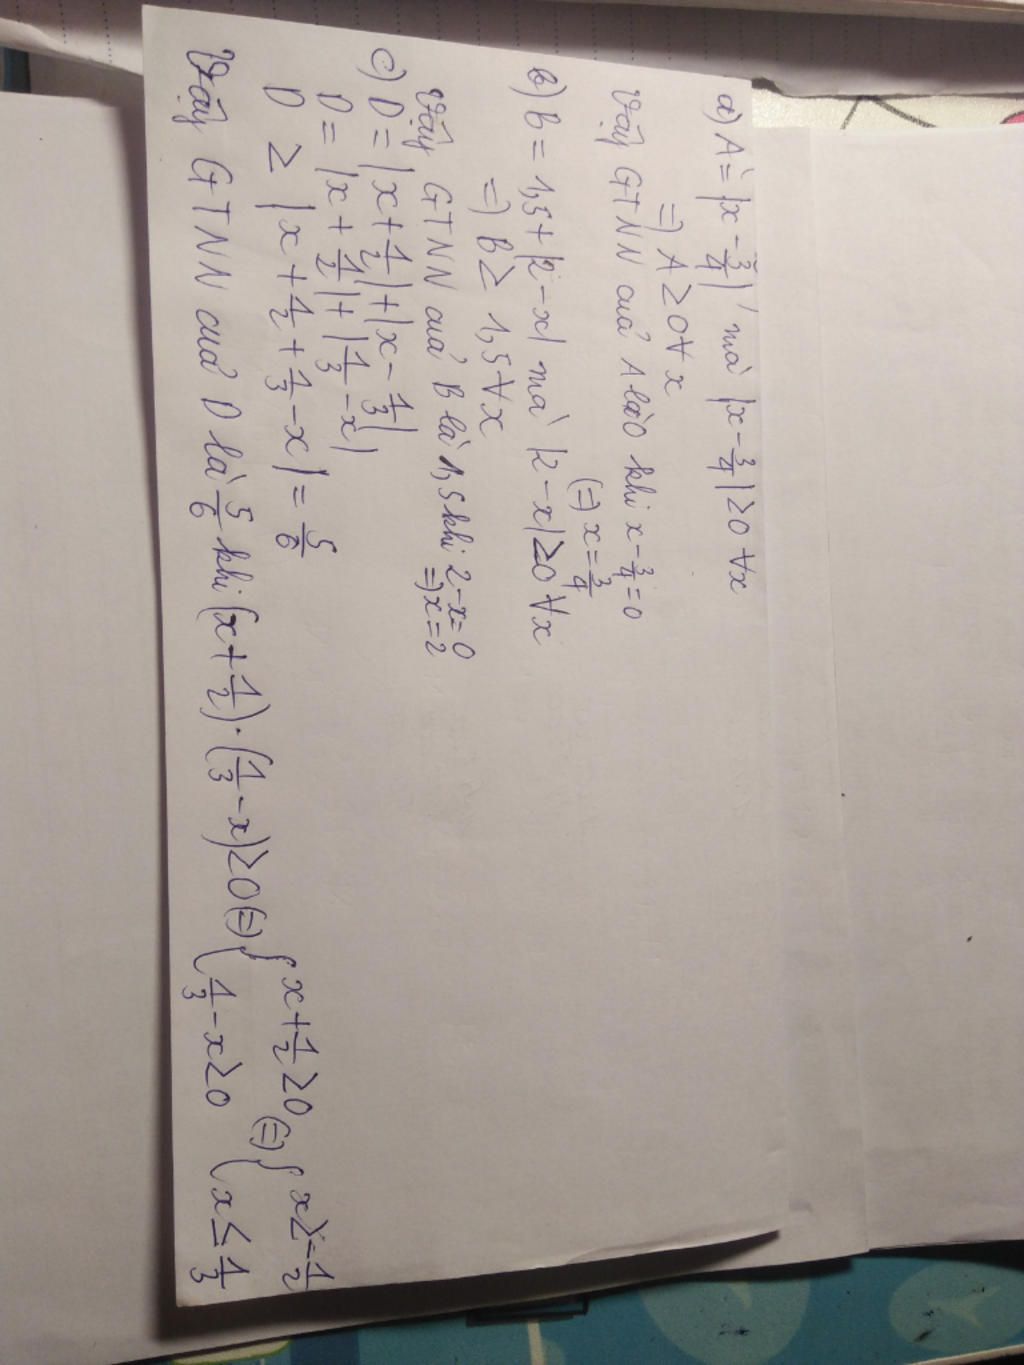 a) A = |x - 3/4| mà |x - 3/4| ≥ 0 ∀x
=) A ≥ 0 ∀ x
Vậy GTNN của A là 0 khi x - 3/4 = 0
(=) x = 3/4
b) B = 1,5 + |2 - x| mà |2 - x| ≥ 0 ∀ x
=) B ≥ 1,5 ∀ x
Vậy GTNN của B là 1,5 khi 2 - x = 0
=) x = 2
c) D = |x + 1/2| + |x - 1/3|
D = |x + 1/2| + |1/3 - x|
D ≥ |x + 1/2 + 1/3 - x| = 5/6
Vậy GTNN của D là 5/6 khi (x + 1/2) . (1/3 - x) ≥ 0 (=) { x + 1/2 ≥ 0 (=) { x ≥ - 1/2
1/3 - x ≥ 0 x ≤ 1/3